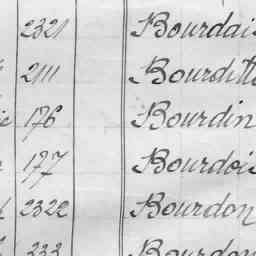 2321 Bourdai
2111 Bourditt
176 Bourdin
177 Bourdois
2322 Bourdon
333 Bourdon